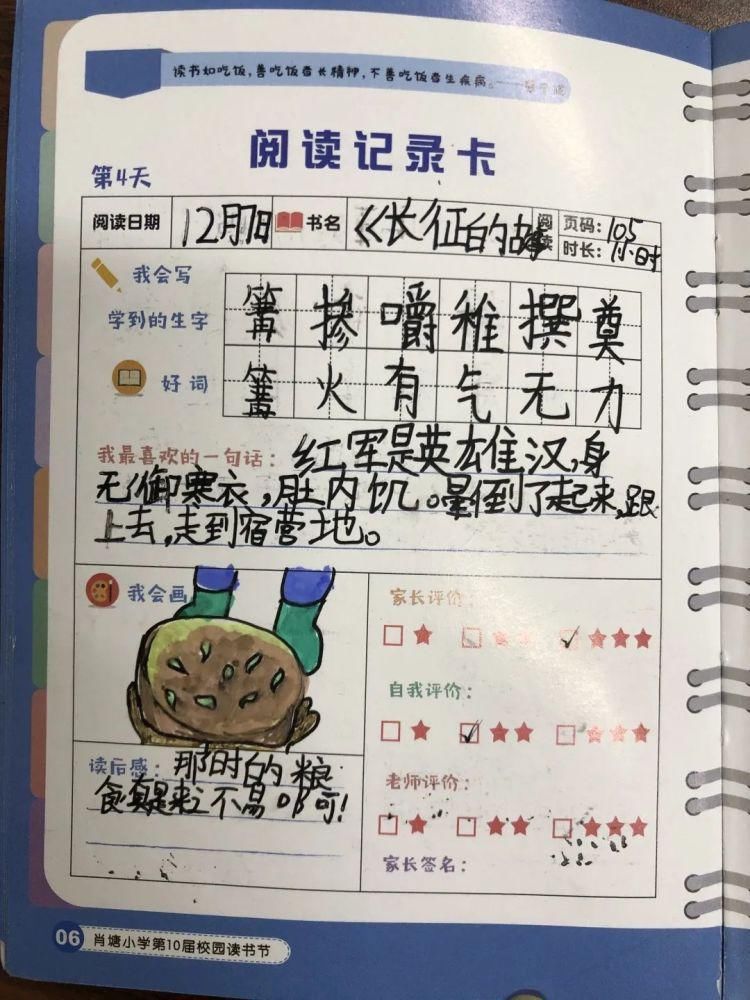 读书如吃饭,善吃饭者长精神,不善吃饭者生疾病。
阅读记录卡
第4天
阅读日期 12月7日 书名 《长征的故事 阅读 页码:105
时长:1小时
我会写
学到的生字 篝 掺 嚼 稚 撰 奠
好词 篝火 有气无力
我最喜欢的一句话:红军是英雄汉,身
无御寒衣,肚内饥。晕倒了起来,跟
上去,走到宿营地。
我会画
家长评价:
自我评价:
老师评价:
家长签名:
读后感:那时的粮
食真是来之不易啊!
06 肖塘小学第10届校园读书节